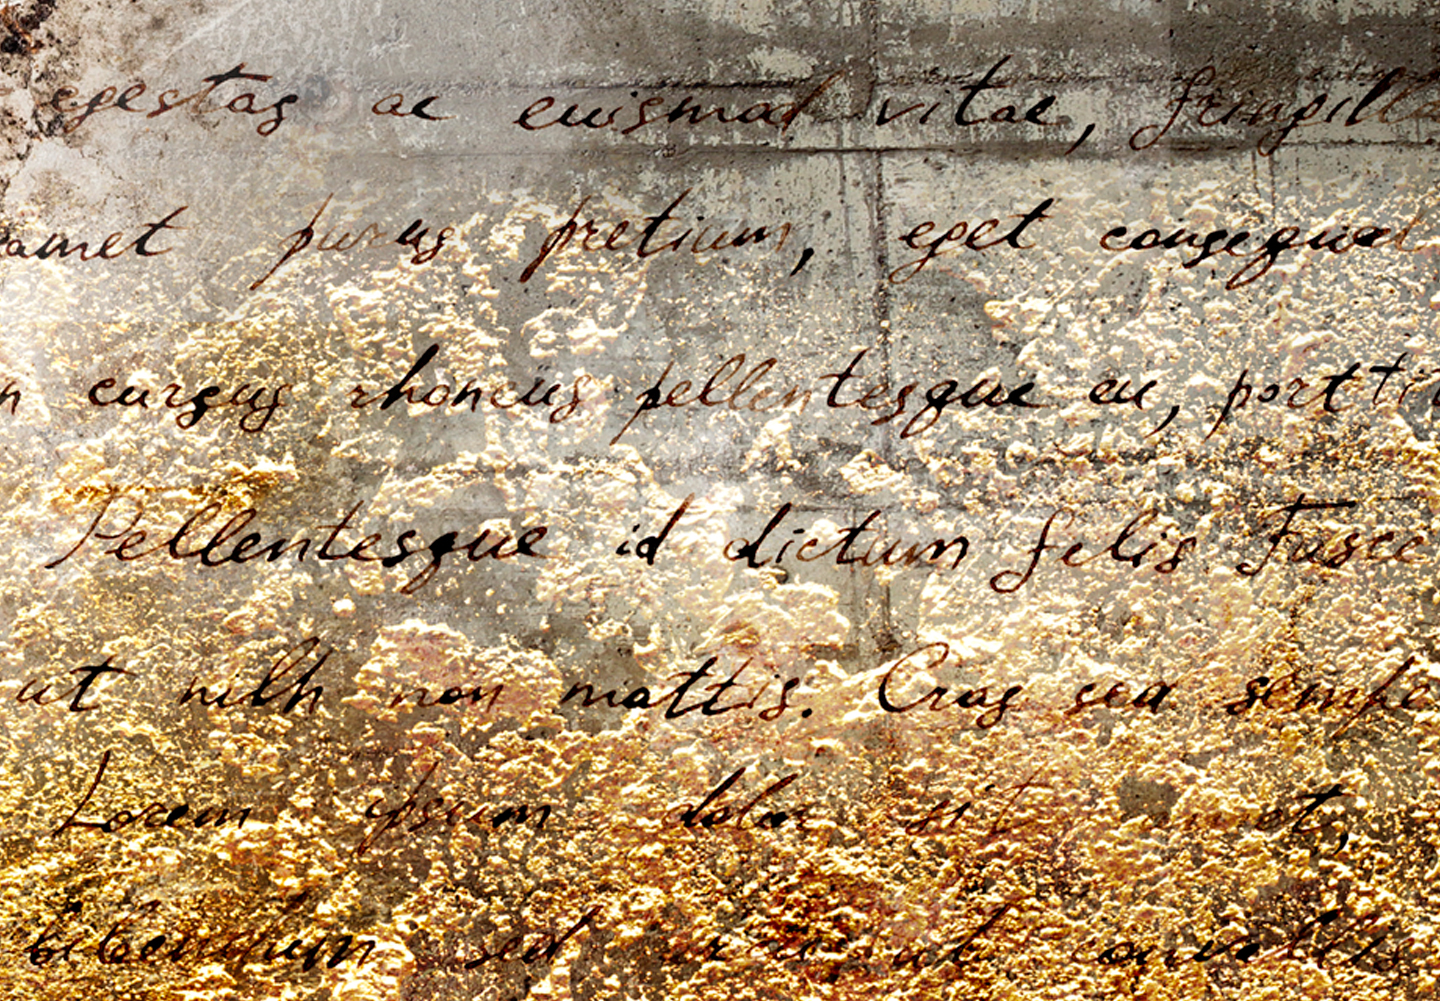 egestas ac euismod vitae, fringilla
amet purus pretium, eget consequat
n cursus rhoncus pellentesque eu, portti
Pellentesque id dictum felis. Fusce
ut nibh non mattis. Cras sed sempe
Lorem ipsum dolor sit amet,
bibendum sed convallis